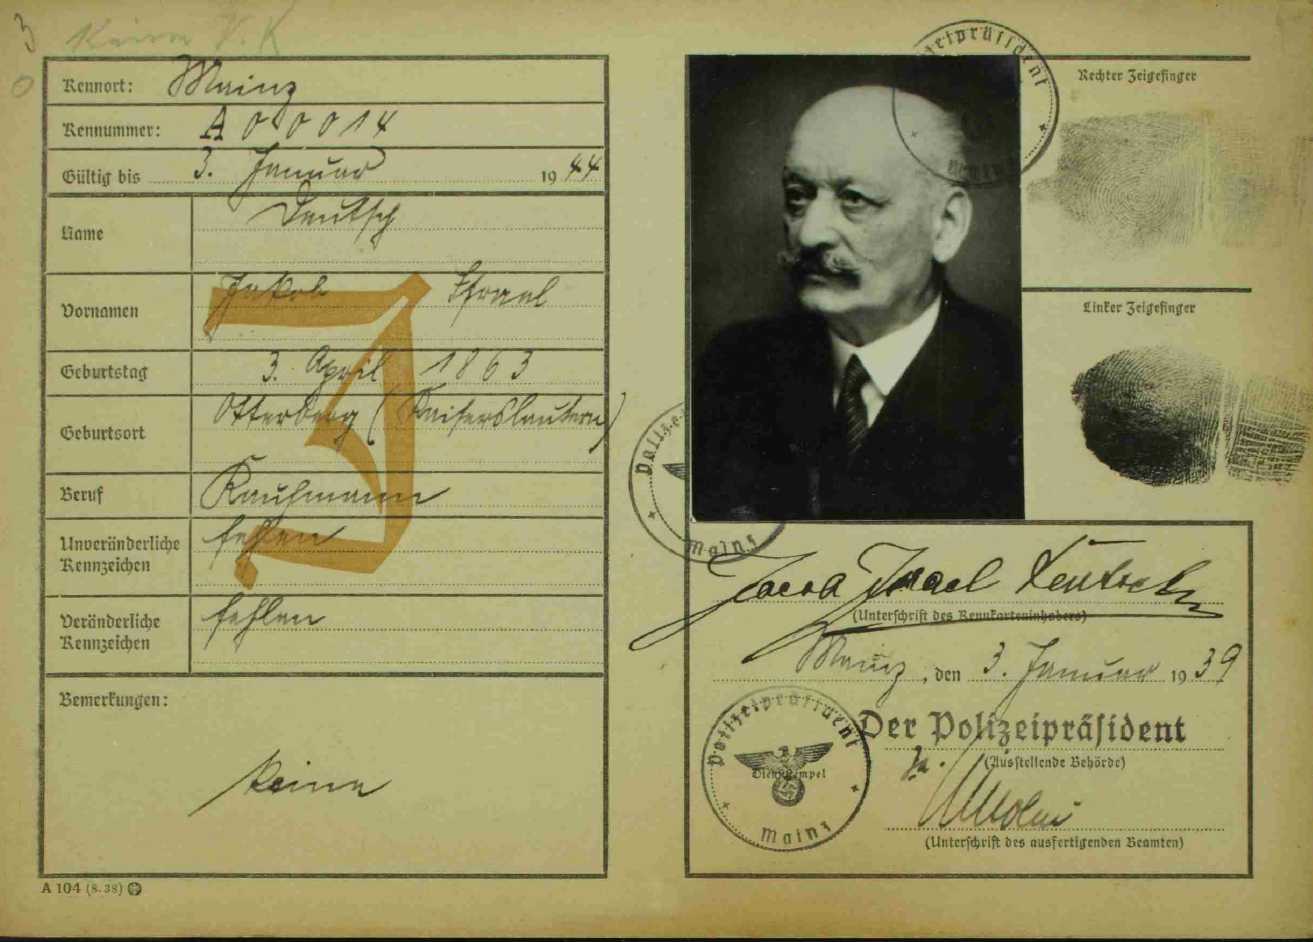 3
0
Keine V.K
Kennort: Mainz
Kennummer: A 00014
Gültig bis 3. Januar 1944
Name Deutsch
Vornamen Jakob Israel
Geburtstag 3. April 1863
Geburtsort Otterberg (Kaiserslautern)
Beruf Kaufmann
Unveränderliche
Kennzeichen fehlen
Veränderliche
Kennzeichen fehlen
Bemerkungen:
keine
J
A 104 (8. 38)
Polizeipräsident
Mainz
Rechter Zeigefinger
Linker Zeigefinger
Mainz
Jacob Israel Deutsch
(Unterschrift des Kennkarteninhabers)
Mainz, den 3. Januar 1939
Der Polizeipräsident
(Ausstellende Behörde)
(Unterschrift des ausfertigenden Beamten)
Polizeipräsident
Dienststempel
Mainz